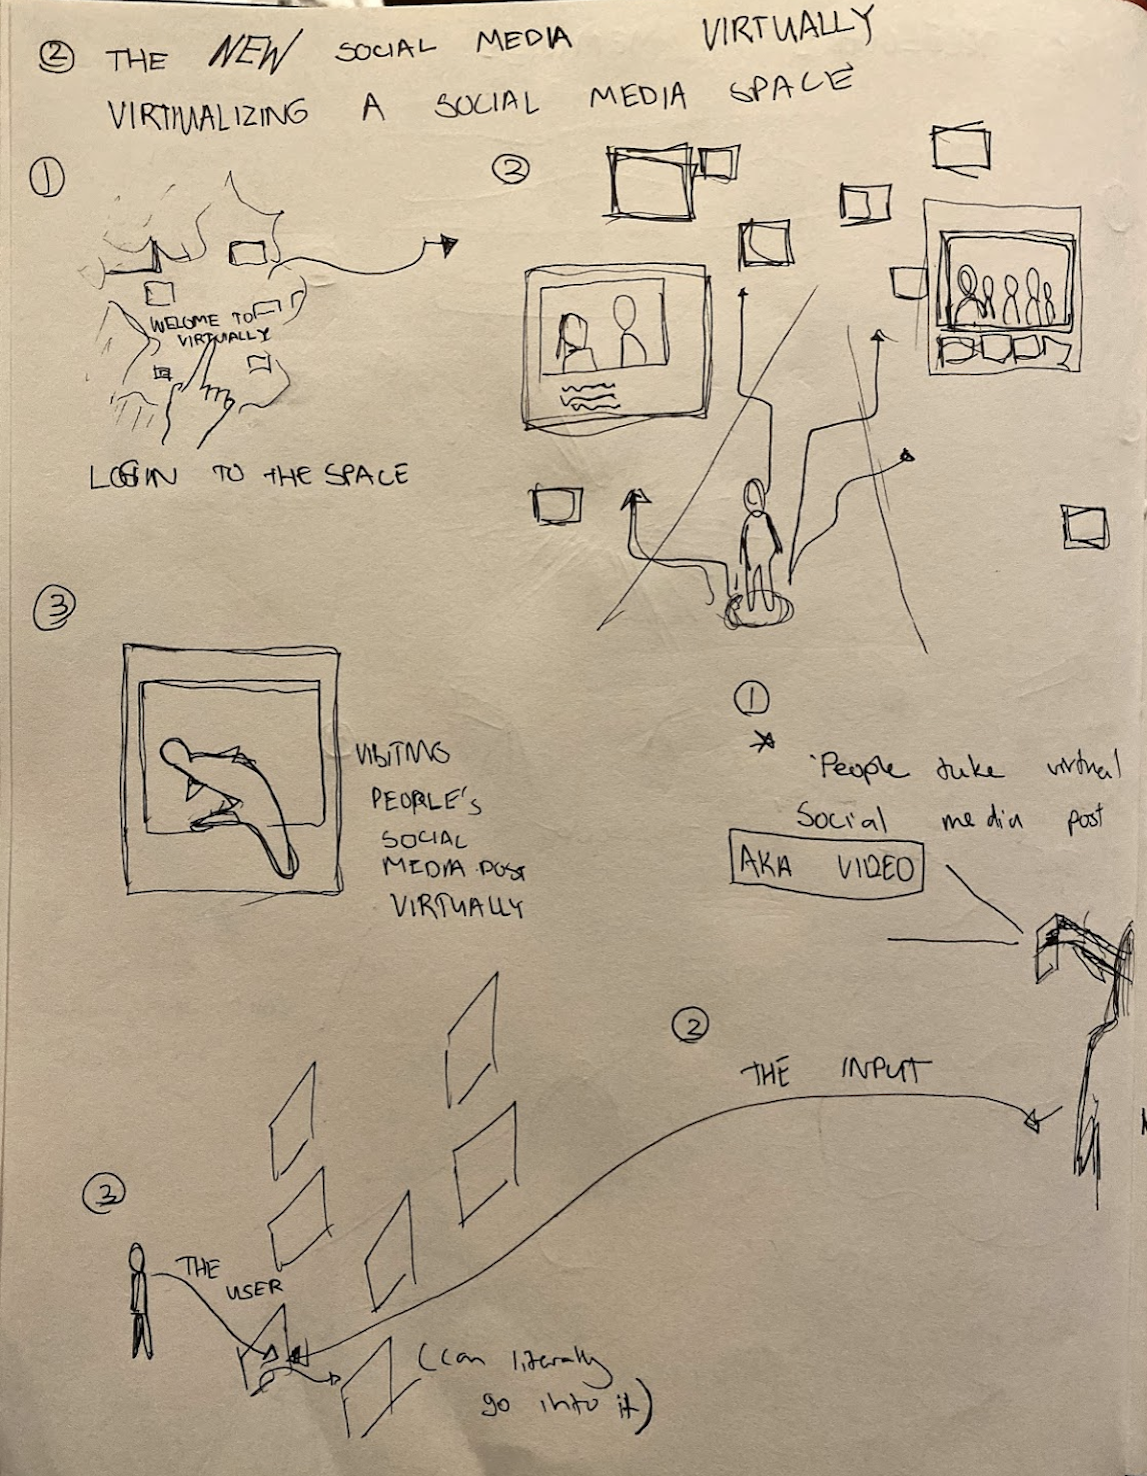 ② THE NEW SOCIAL MEDIA VIRTUALLY
VIRTUALIZING A SOCIAL MEDIA SPACE
①
WELOME TO
VIRTUALLY
LOGIN TO THE SPACE
②
③
VISITING
PEOPLE'S
SOCIAL
MEDIA POST
VIRTUALLY
①
* People take virtual
Social media post
AKA VIDEO
②
THE INPUT
③
THE
USER
(Can literally
go into it)